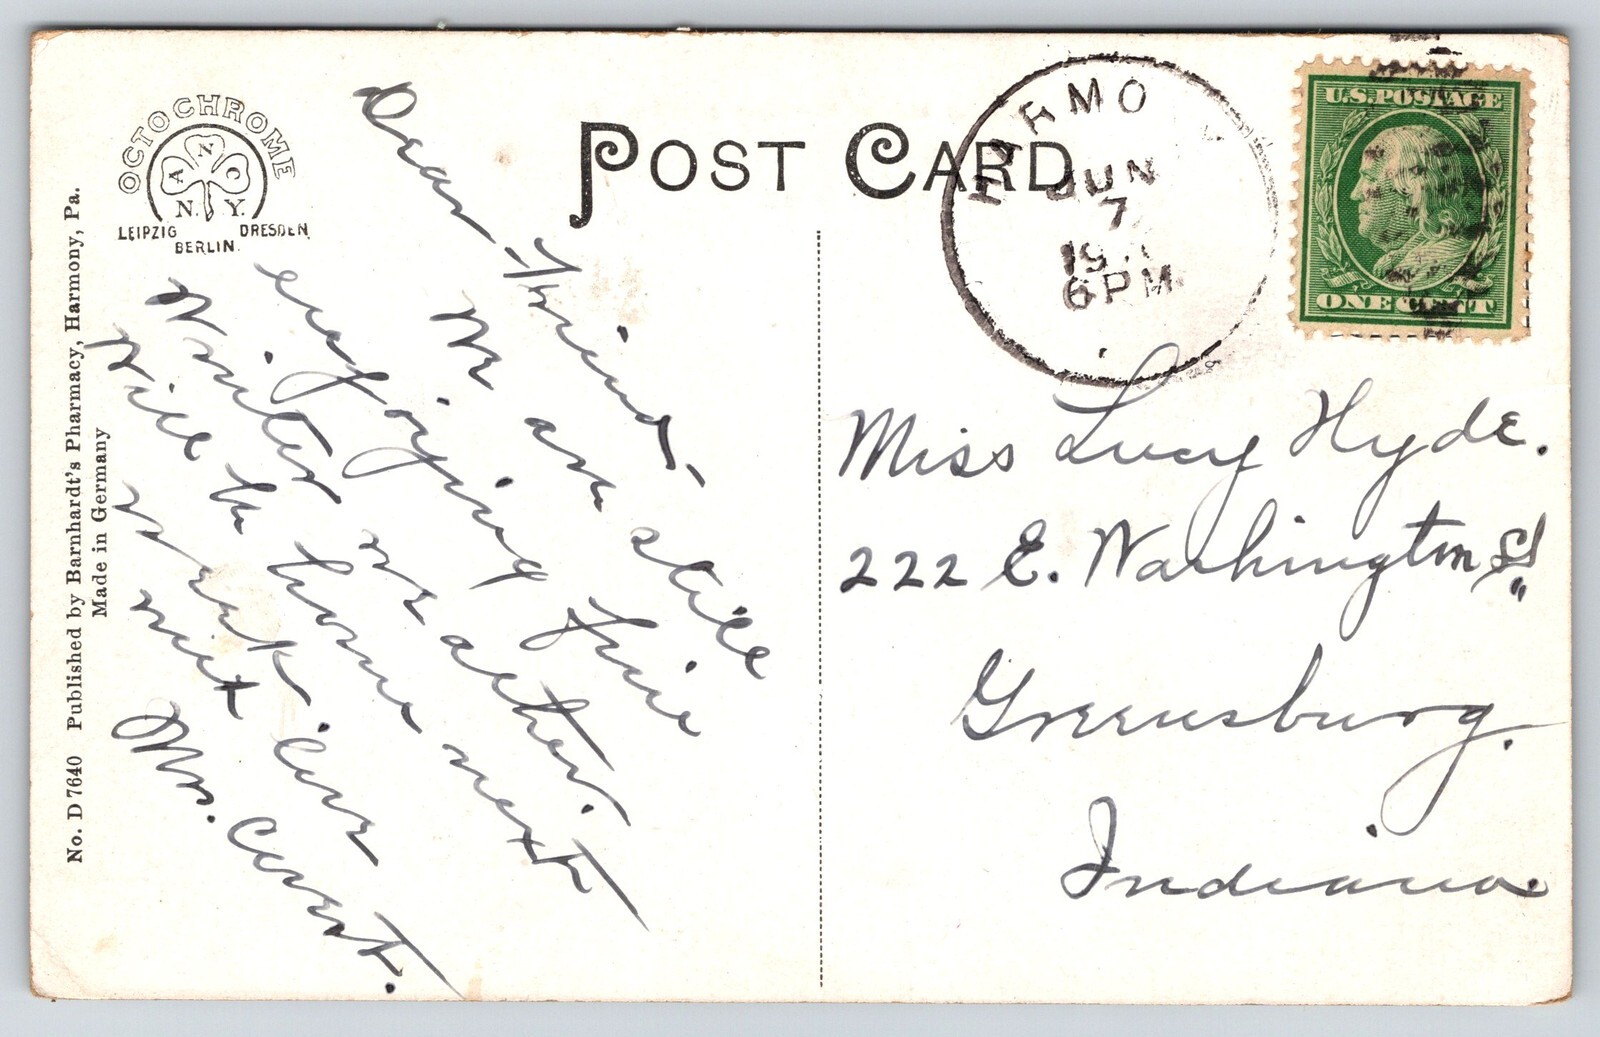 OCTOCHROME
A N C
N. Y.
LEIPZIG DRESDEN
BERLIN.
No. D 7640 Published by Barnhardt's Pharmacy, Harmony, Pa.
Made in Germany
POST CARD
HARMO
JUN
7
6 PM
U.S. POSTAGE
ONE CENT
Dear Friend,-
We are still
enjoying fine
Winter weather.
Will be home next
week love
Mrs. Covert.
Miss Lucy Hyde.
222 E. Washington St
Greensburg.
Indiana.